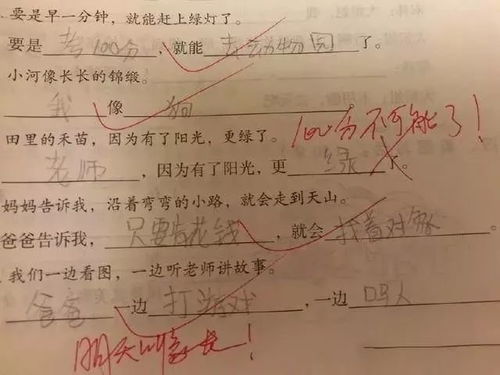 要是早一分钟，就能赶上绿灯了。
要是考100分，就能去动物园了。
小河像长长的锦缎。
我像狗
100分不可能了！
田里的禾苗，因为有了阳光，更绿了。
老师，因为有了阳光，更绿了。
妈妈告诉我，沿着弯弯的小路，就会走到天山。
爸爸告诉我，只要有花钱，就会找着对象
我们一边看图，一边听老师讲故事。
爸爸一边打游戏，一边吗人
明天叫家长！